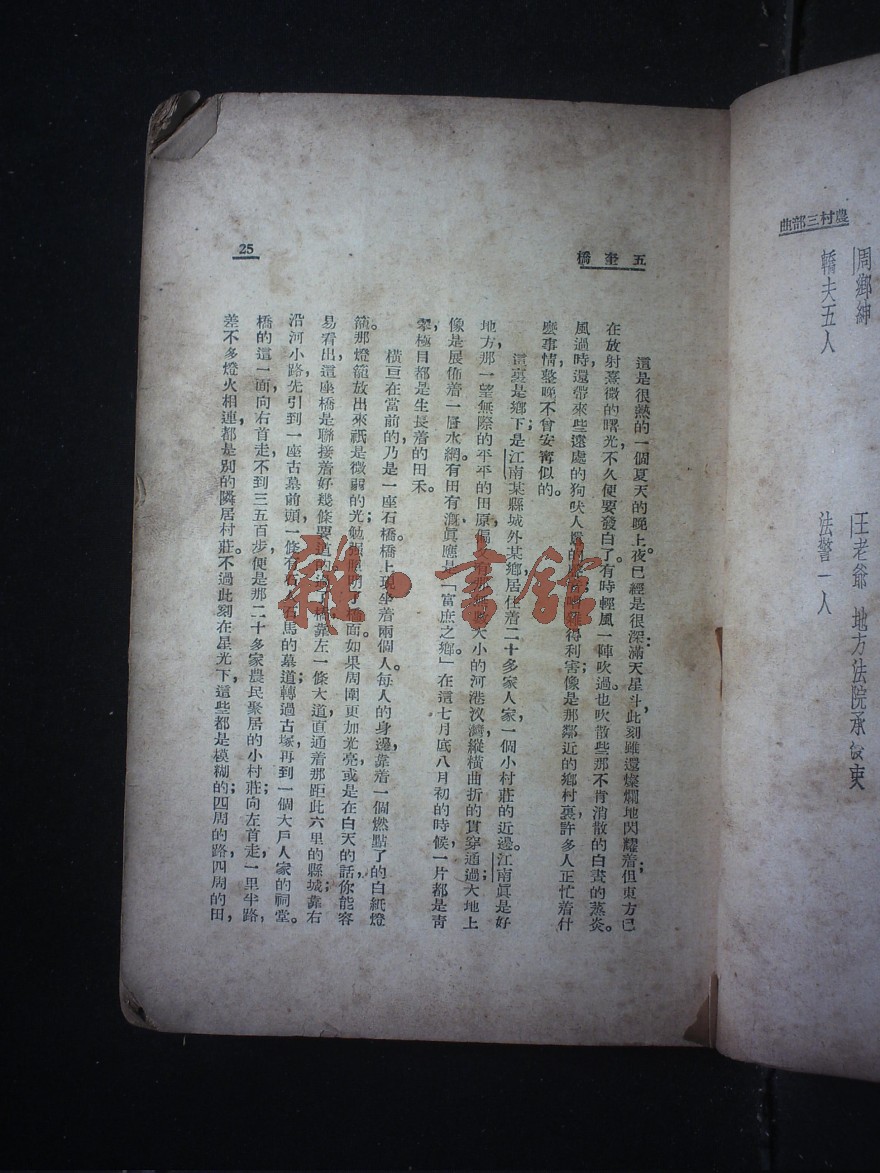 農村三部曲
周鄉紳
轎夫五人
王老爺 地方法院承發吏
法警一人
五奎橋
這是很熱的一個夏天的晚上。夜已經是很深,滿天星斗,此刻雖還燦爛地閃耀着;但東方已
在放射熹微的曙光,不久便要發白了。有時輕風一陣吹過,也吹散些那不肯消散的白晝的蒸炎。
風過時,還帶來些遠處的狗吠人聲的得利害;像是那鄰近的鄉村裏,許多人正忙着什
麼事情,整晚不曾安甯似的。
這裏是鄉下;是江南某縣城外某鄉,居住着二十多家人家,一個小村莊的近邊。江南眞是好
地方,那一望無際的平平的田原,偏又有那大小的河港汊灣,縱橫曲折的貫穿通過,大地上
像是展佈着一層水網。有田有漑,眞應是「富庶之鄉」。在這七月底八月初的時候,一片都是靑
翠,極目都是生長着的田禾。
橫亘在當前的,乃是一座石橋。橋上現坐着兩個人。每人的身邊,靠着一個燃點了的白紙燈
籠。那燈籠放出來祇是微弱的光;勉强照明了橋面。如果周圍更加光亮,或是在白天的話,你能容
易看出,這座橋是聯接着好幾條要道的。過了橋,靠左一條大道,直通着那距此六里的縣城;靠右
沿河小路,先引到一座古墓前頭,一條有石人石馬的墓道;轉過古塚,再到一個大戶人家的祠堂。
橋的這一面,向右首走,不到三五百步,便是那二十多家農民聚居的小村莊;向左首走,一里半路,
差不多燈火相連,都是別的隣居村莊。不過此刻在星光下,這些都是模糊的;四周的路,四周的田,
25
雜·書舘